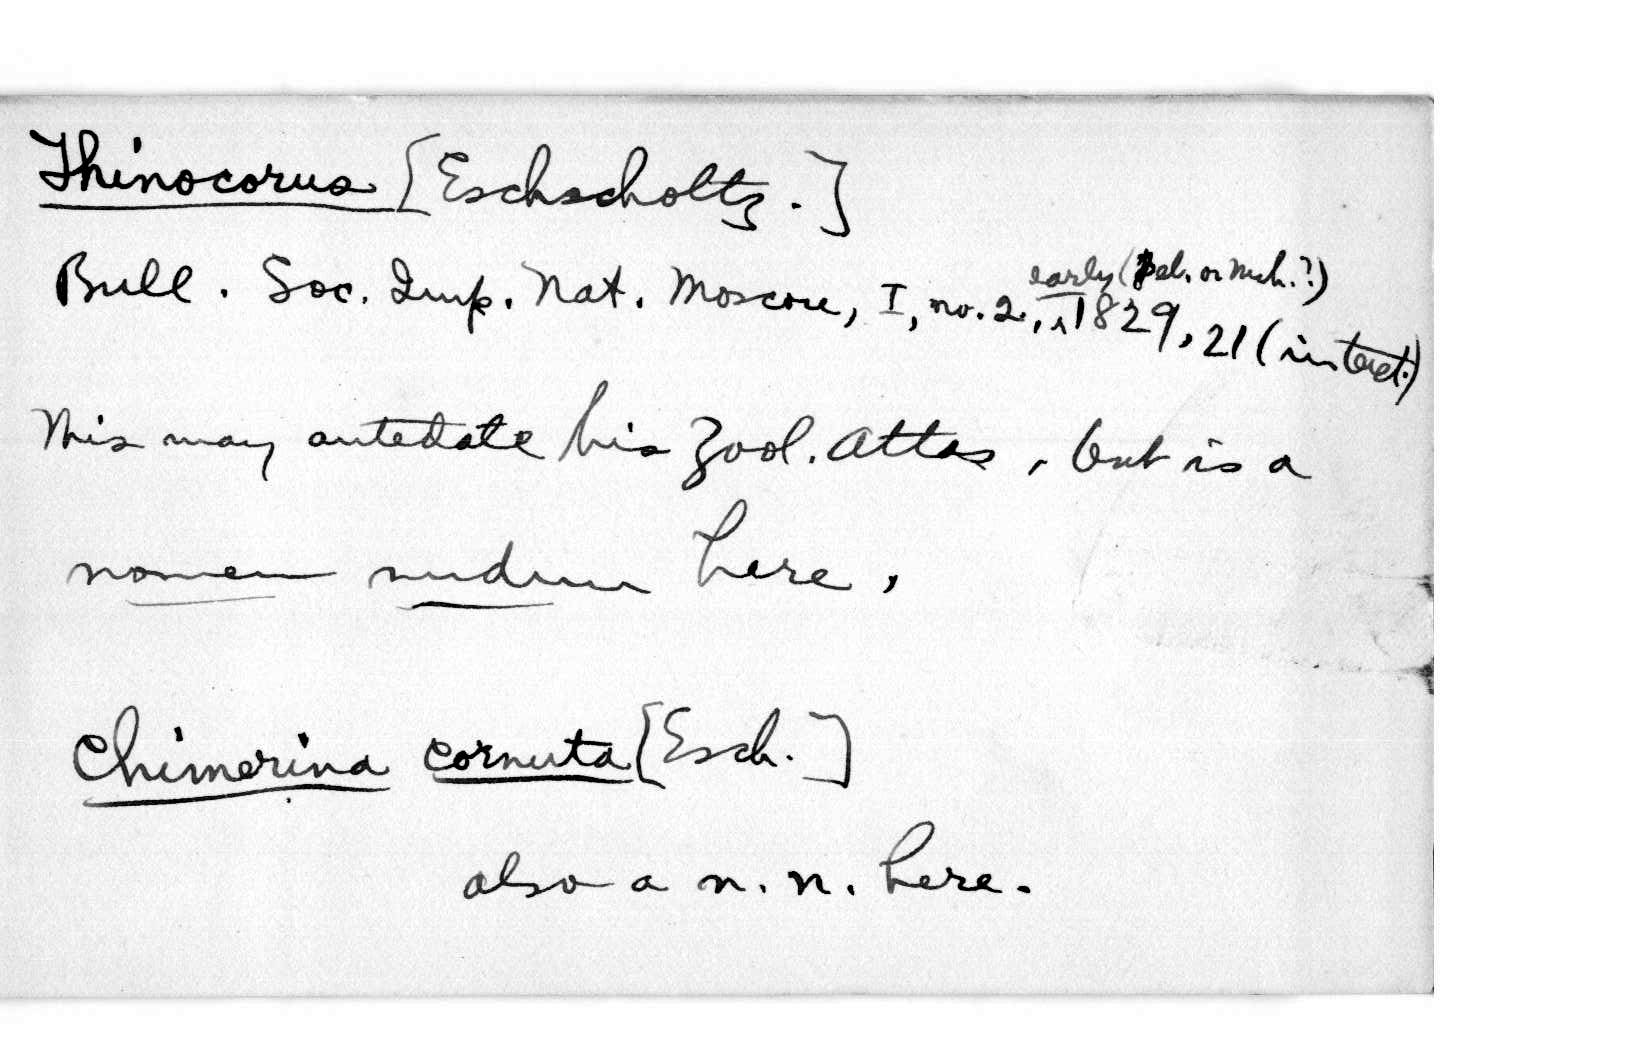 Thinocorus [Eschscholtz.]
Bull. Soc. Imp. Nat. Moscou, I, no. 2, early (Feb. or Mch.?) 1829, 21 (in text.)
This may antedate his Zool. Atlas, but is a
nomen nudum here,
Chimerina cornuta [Esch.]
also a n. n. here.